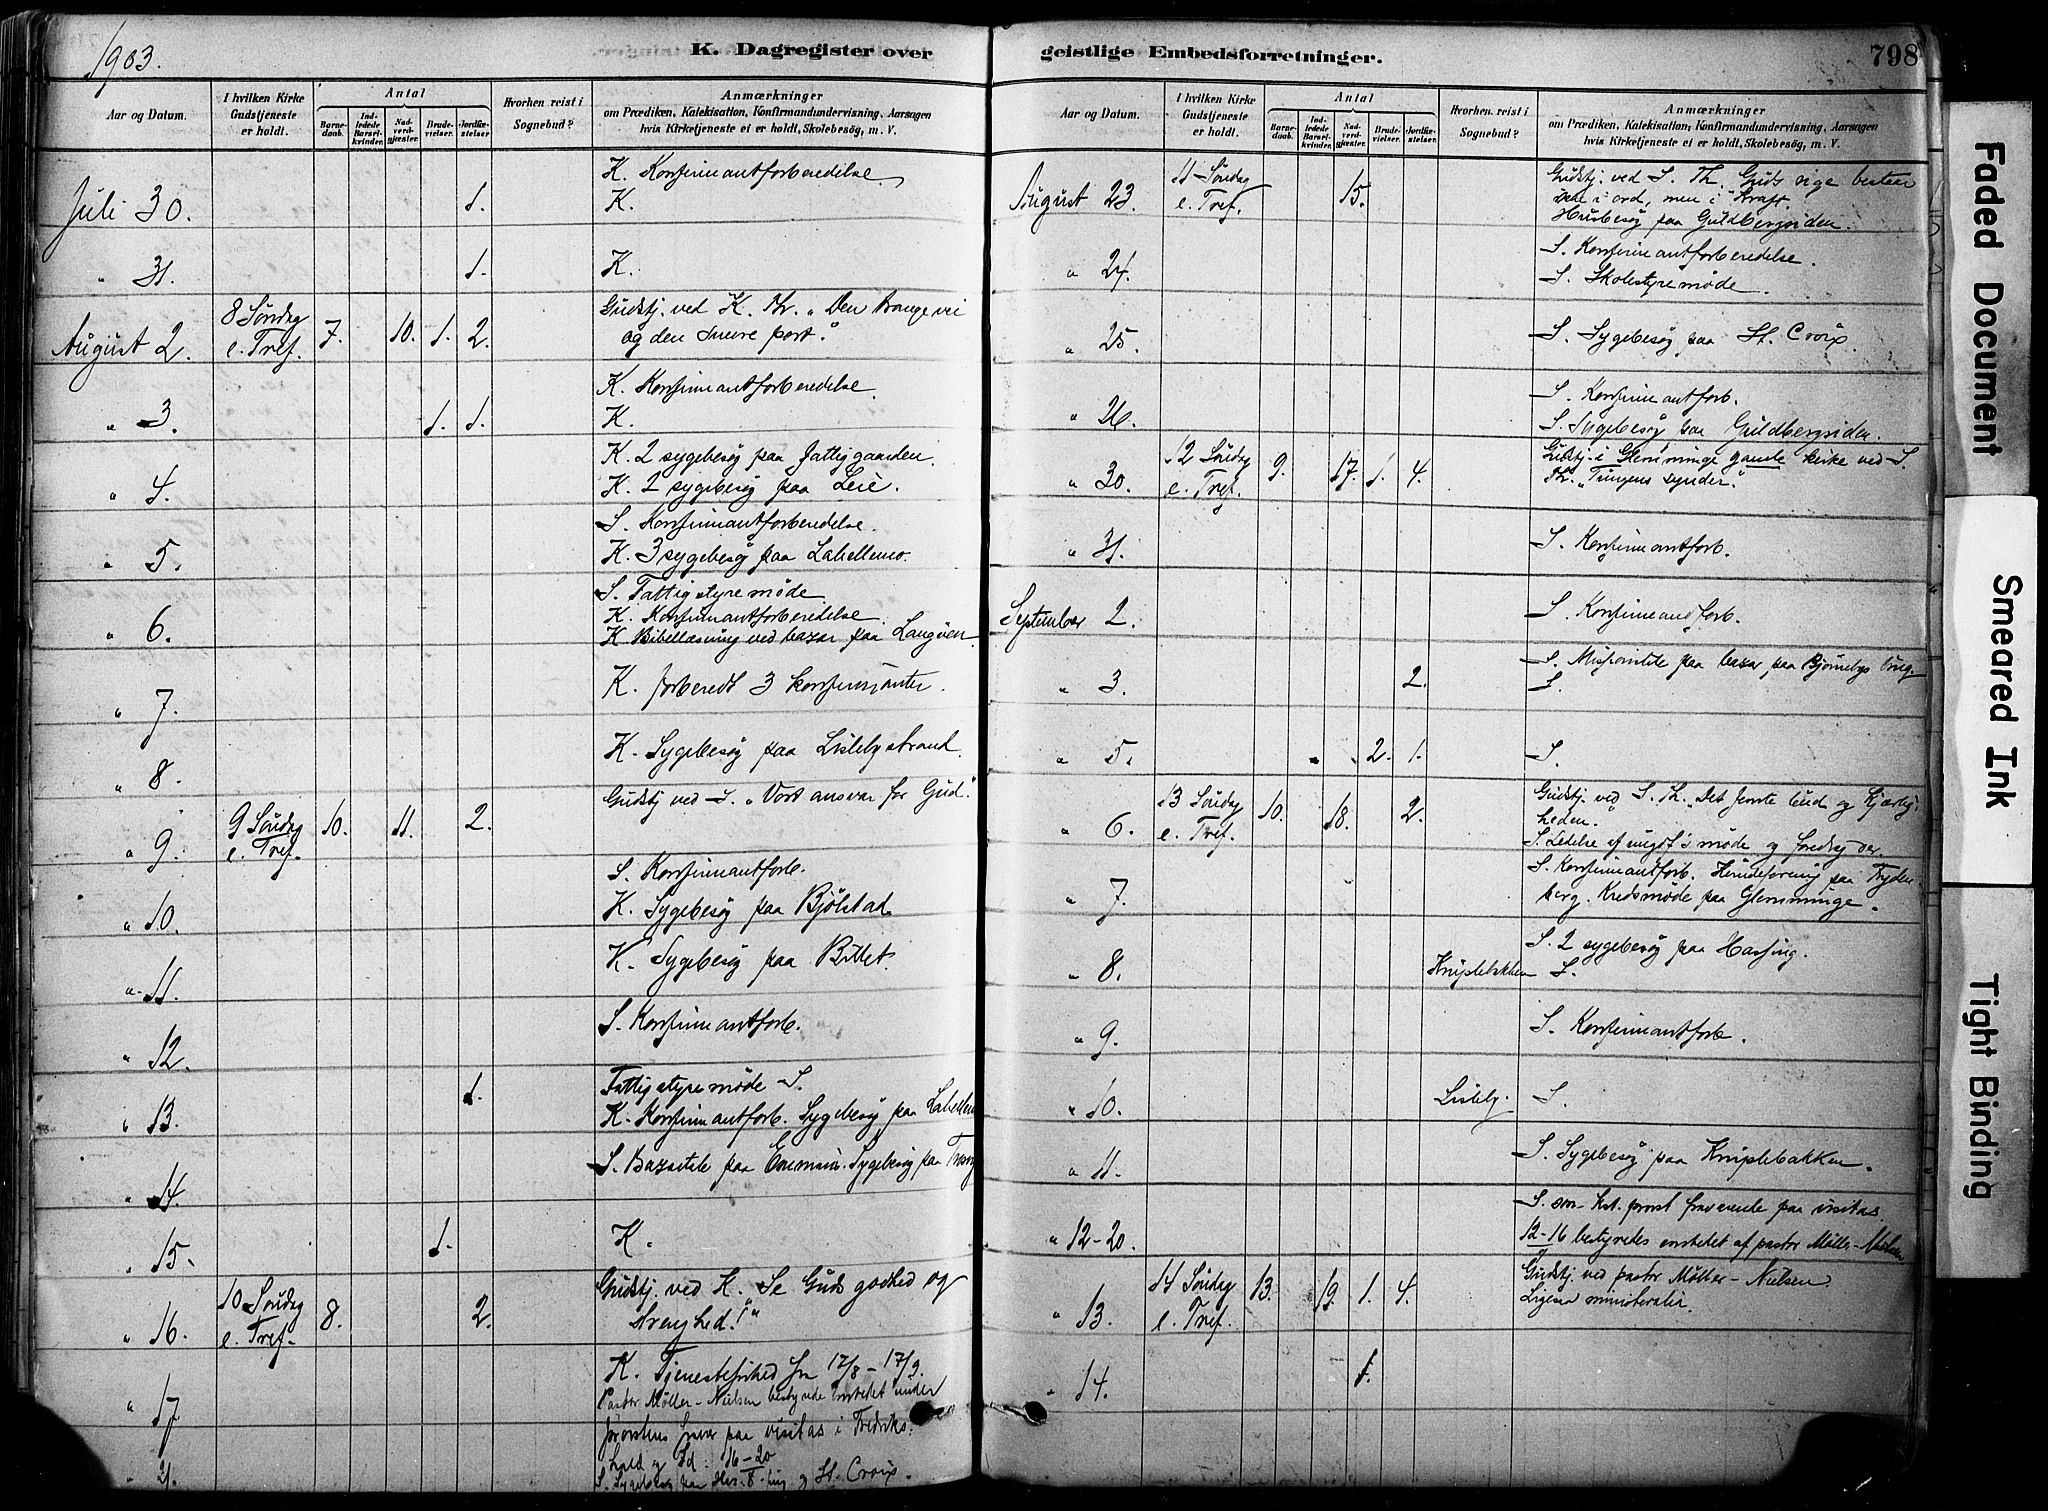 1903.
K. Dagregister over
Aar og Datum.
I hvilken Kirke Gudstjeneste er holdt.
Antal
Barnedaab.
Indledede Barselkvinder.
Nadverdgjester.
Brudevielser.
Jordfæstelser
Hvorhen reist i Sognebud?
Anmærkninger
om Prædiken, Katekisation, Konfirmandundervisning, Aarsagen
hvis Kirketjeneste ei er holdt, Skolebesög, m. V.
K. Konfirmantforberedelse.
Juli 30. 1. K.
" 31. 1. K.
August 2. 8 Søndag e. Tref. 7. 10. 1. 2. Gudstj. ved K. Thr. "Den trange vei
og den snevre port."
K. Konfirmantforberedelse.
" 3. 1. 1. K.
K. 2 sygebesøg paa Fattiggaarden.
" 4. K. 2 sygebesøg paa Leie.
S. Konfirmantforberedelse.
" 5. K. 3 sygebesøg paa Labellemo.
S. Fattigstyremøde
K. Konfirmantforberedelse.
" 6. K Bibellæsning ved bazar paa Langøen
" 7. K. forberedt 3 konfirmanter.
" 8. K. Sygebesøg paa Lislebystrand.
" 9. 9 Søndag e. Tref. 10. 11. 2. Gudstj ved S. "Vort ansvar for Gud."
S. Konfirmantforb.
" 10. K. Sygebesøg paa Bjølstad.
" 11. K. Sygebesøg paa Billet.
" 12. S. Konfirmantforb.
" 13. 1. Fattigstyremøde S.
K. Konfirmantforb. Sygebesøg paa
" 14. S. Bazartale paa Sygebesøg paa
" 15. 1. K.
" 16. 10 Søndag e. Tref. 8. 2. Gudstj. ved K. "Se Guds godhed og
strenghed!"
" 17 K. Tjenestefrihed fra 17/8 – 17/9.
Pastor Møller-Nielsen bestyrede embedet under
provstens fravær paa visitas i Fredriks-
hald og Id: 16–20
" 21. S. Sygebesøg paa og St. Croix.
geistlige Embedsforretninger.
798
Aar og Datum.
I hvilken Kirke Gudstjeneste er holdt.
Antal
Barnedaab.
Indledede Barselkvinder.
Nadverdgjester.
Brudevielser.
Jordfæstelser.
Hvorhen reist i Sognebud?
Anmærkninger
om Prædiken, Katekisation, Konfirmandundervisning, Aarsagen
hvis Kirketjeneste ei er holdt, Skolebesög, m. V.
August 23. 11 Søndag e. Tref. 15. Gudstj. ved S. Th. Guds rige bestaar
ikke i ord, men i kraft.
Husbesøg paa Guldbergsiden.
" 24. S. Konfirmantforberedelse.
S. Skolestyremøde.
" 25. S. Sygebesøg paa St. Croix.
" 26. S. Konfirmantforb.
S. Sygebesøg paa Guldbergsiden.
" 30. 12 Søndag e. Tref. 9. 17. 1. 4. Gudstj. i Glemminge gamle kirke ved S.
Thr. "Tungens synder."
" 31. S. Konfirmantforb.
September 2. S. Konfirmandforb.
S. Missionstale paa bazar paa Bjørnebys brug.
" 3. 2. S.
" 5. 2. 1. S.
" 6. 13 Søndag e. Tref. 10. 18. 2. Gudstj. ved S. Th. "Det første bud og kjærlig-
heden."
S. Ledelse af ungd.s møde og foredrag der.
" 7. S. Konfirmantforb. paa Tryden-
berg. Kredsmøde paa Glemminge.
S. 2 sygebesøg paa Hassing.
" 8. Kniplebakken S.
" 9. S. Konfirmantforb.
" 10. Lisleby. S.
" 11. S. Sygebesøg paa Kniplebakken.
" 12–20. S. som kst. provst fraværende paa visitas.
12–16 bestyredes embedet af pastor Møller-Nielsen
" 13. 14 Søndag e. Tref. 13. 19. 1. 4. Gudstj. ved pastor Møller-Nielsen.
Ligesaa ministerialia.
" 14. 1.
Faded Document
Smeared Ink
Tight Binding